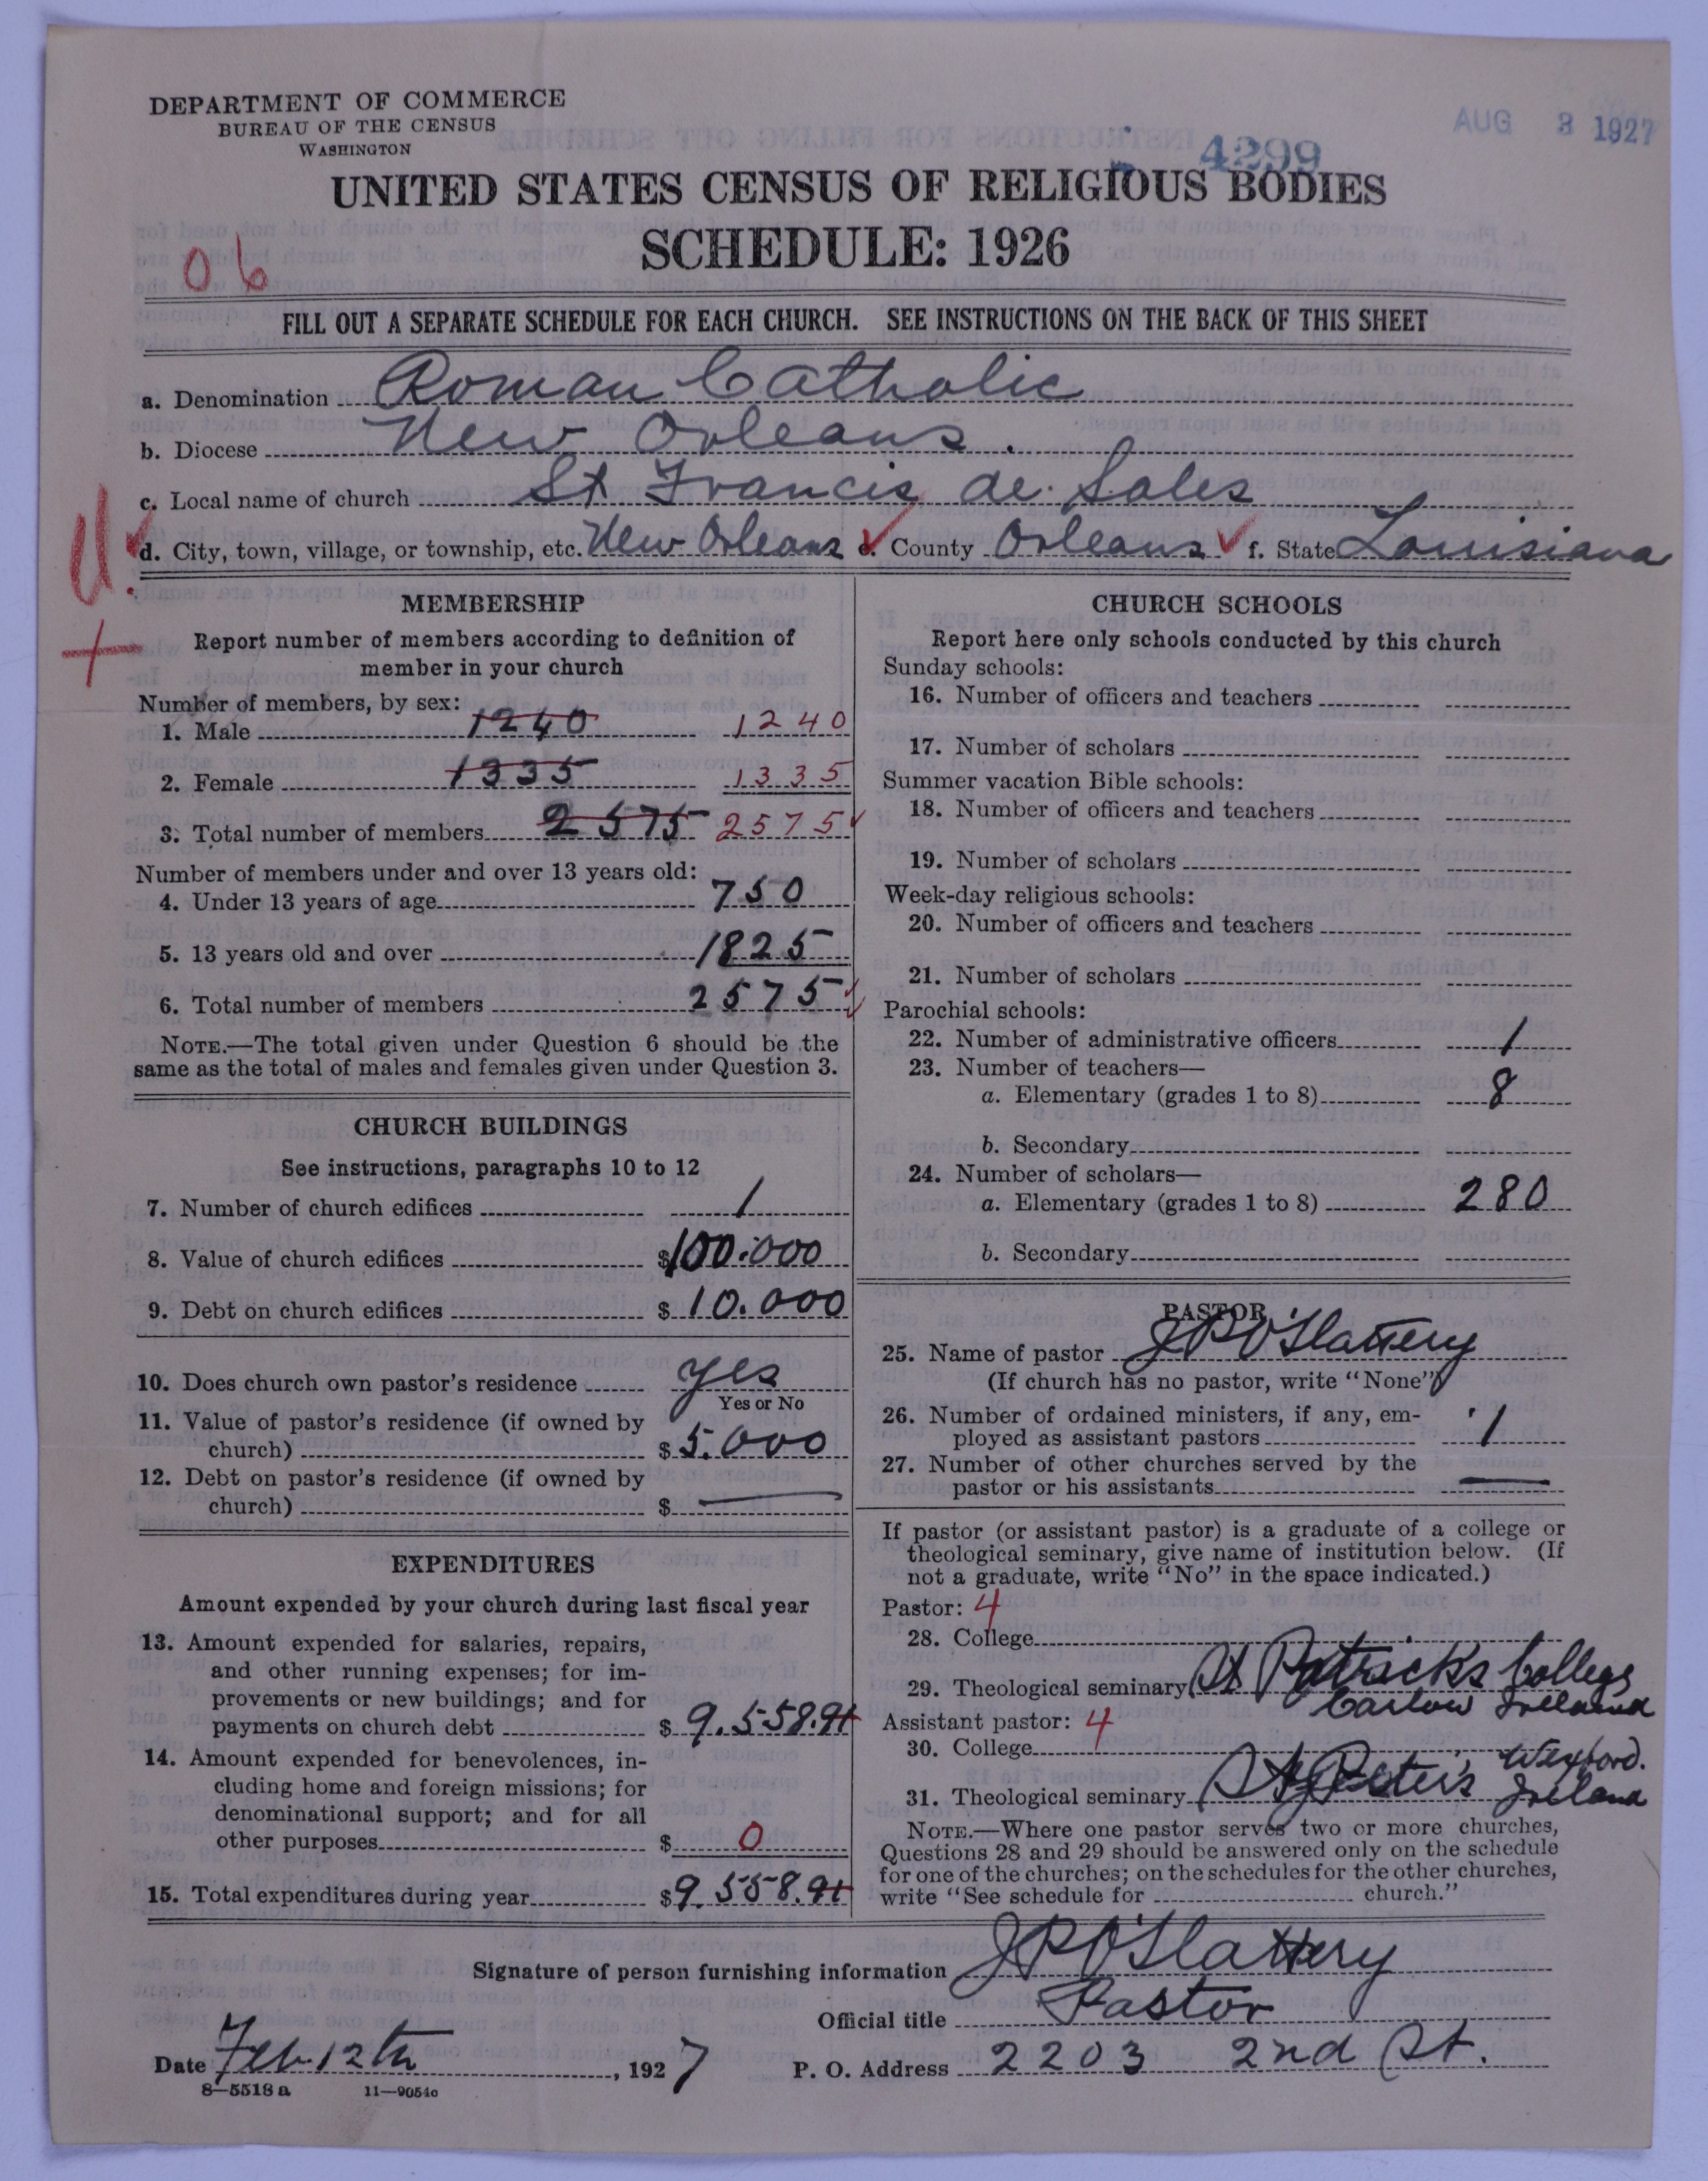 DEPARTMENT OF COMMERCE
BUREAU OF THE CENSUS
WASHINGTON
AUG 3 1927
4299
UNITED STATES CENSUS OF RELIGIOUS BODIES
SCHEDULE: 1926
06
FILL OUT A SEPARATE SCHEDULE FOR EACH CHURCH. SEE INSTRUCTIONS ON THE BACK OF THIS SHEET
a. Denomination Roman Catholic
b. Diocese New Orleans.
c. Local name of church St Francis de Sales
d. City, town, village, or township, etc. New Orleans e. County Orleans f. State Louisiana
MEMBERSHIP
Report number of members according to definition of
member in your church
Number of members, by sex:
1. Male 1240 1240
2. Female 1335 1335
3. Total number of members 2575 2575
Number of members under and over 13 years old:
4. Under 13 years of age 750
5. 13 years old and over 1825
6. Total number of members 2575
NOTE.—The total given under Question 6 should be the
same as the total of males and females given under Question 3.
CHURCH BUILDINGS
See instructions, paragraphs 10 to 12
7. Number of church edifices 1
8. Value of church edifices $100.000
9. Debt on church edifices $10.000
10. Does church own pastor's residence yes
Yes or No
11. Value of pastor's residence (if owned by
church) $5.000
12. Debt on pastor's residence (if owned by
church) $ —
EXPENDITURES
Amount expended by your church during last fiscal year
13. Amount expended for salaries, repairs,
and other running expenses; for im-
provements or new buildings; and for
payments on church debt $9.558.91
14. Amount expended for benevolences, in-
cluding home and foreign missions; for
denominational support; and for all
other purposes $ 0
15. Total expenditures during year $9.558.91
CHURCH SCHOOLS
Report here only schools conducted by this church
Sunday schools:
16. Number of officers and teachers
17. Number of scholars
Summer vacation Bible schools:
18. Number of officers and teachers
19. Number of scholars
Week-day religious schools:
20. Number of officers and teachers
21. Number of scholars
Parochial schools:
22. Number of administrative officers 1
23. Number of teachers—
a. Elementary (grades 1 to 8) 8
b. Secondary
24. Number of scholars—
a. Elementary (grades 1 to 8) 280
b. Secondary
PASTOR
25. Name of pastor J P O'Slattery
(If church has no pastor, write "None")
26. Number of ordained ministers, if any, em-
ployed as assistant pastors 1
27. Number of other churches served by the
pastor or his assistants —
If pastor (or assistant pastor) is a graduate of a college or
theological seminary, give name of institution below. (If
not a graduate, write "No" in the space indicated.)
Pastor: 4
28. College
29. Theological seminary St Patrick's College
Carlow Ireland
Assistant pastor: 4
30. College
31. Theological seminary St Peter's Wexford.
Ireland
NOTE.—Where one pastor serves two or more churches,
Questions 28 and 29 should be answered only on the schedule
for one of the churches; on the schedules for the other churches,
write "See schedule for church."
Signature of person furnishing information J P O'Slattery
Official title Pastor
Date Feb 12th, 1927 P. O. Address 2203 2nd St.
8—5518 a 11—9054c